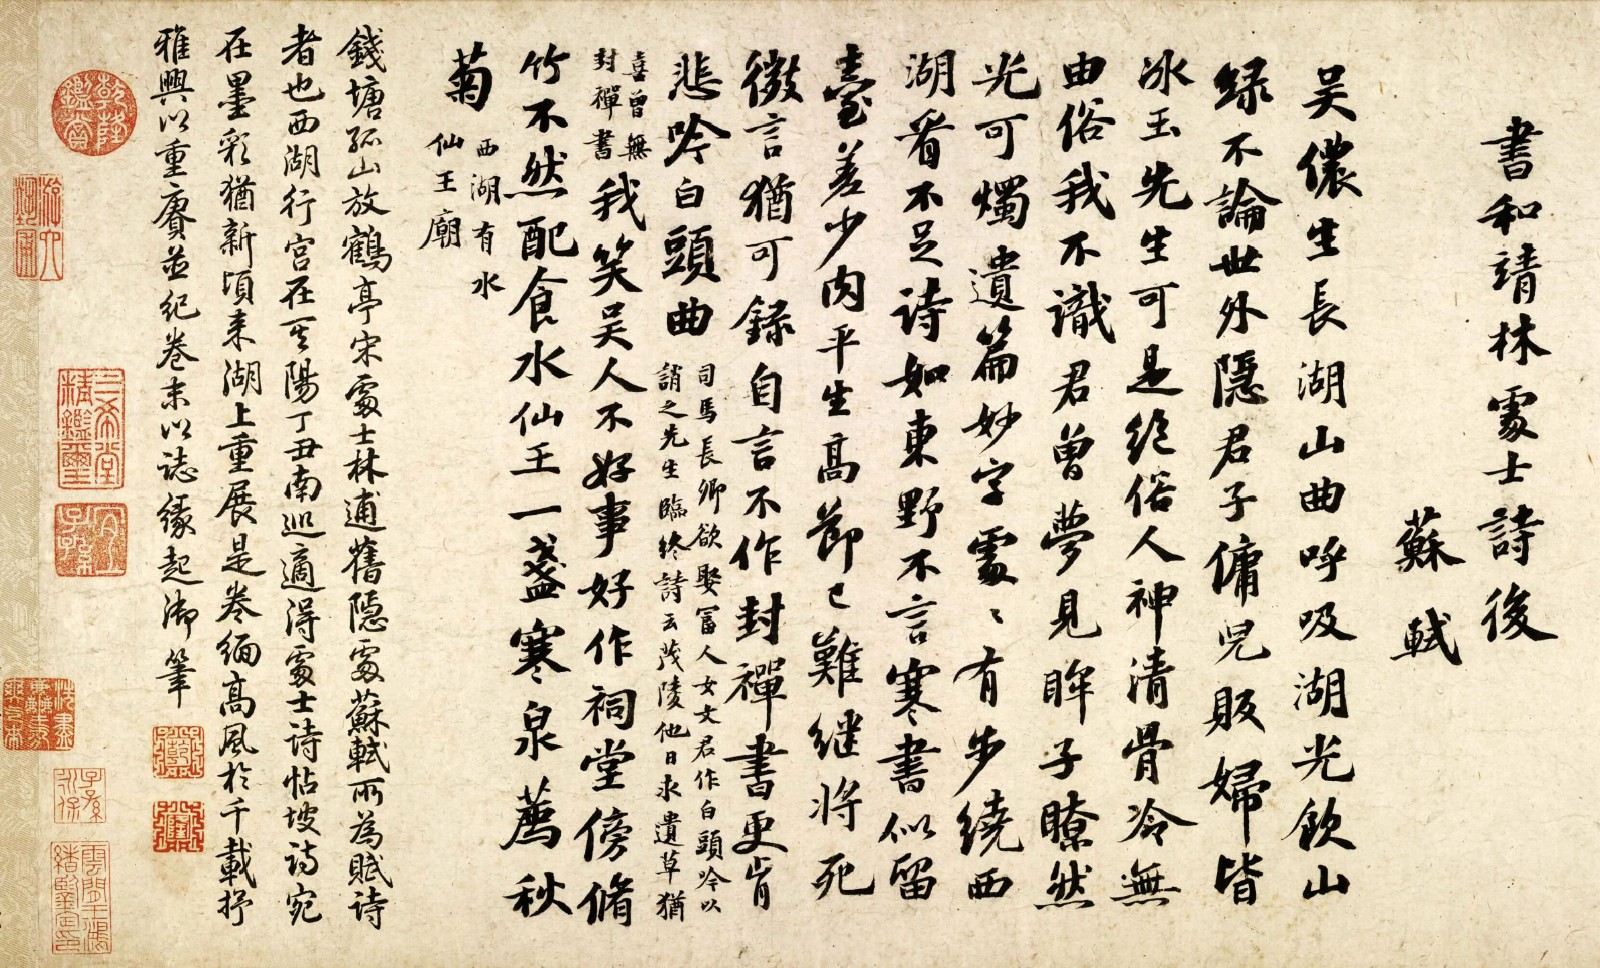 書和靖林處士詩後
蘇軾
吳儂生長湖山曲呼吸湖光飲山
緑不論世外隱君子傭兒販婦皆
冰玉先生可是絕俗人神清骨冷無
由俗我不識君曾夢見眸子瞭然
光可燭遺篇妙字處〻有步繞西
湖看不足詩如東野不言寒書似留
臺差少肉平生高節已難継將死
微言猶可錄自言不作封禪書更肯
悲吟白頭曲
司馬長卿欲娶富人女文君作白頭吟以
誚之先生臨終詩云茂陵他日求遺草猶
喜曾無
封禪書
我笑吳人不好事好作祠堂傍脩
竹不然配食水仙王一盞寒泉薦秋
菊
西湖有水
仙王廟
錢塘孤山放鶴亭宋處士林逋舊隱處蘇軾所為賦詩
者也西湖行宮在其陽丁丑南巡適得處士詩帖坡詩宛
在墨彩猶新頃來湖上重展是卷緬高風於千載抒
雅興以重賡並紀卷末以誌緣起御筆
乾隆
鑑賞
三希堂
精鑑璽
宜
子孫